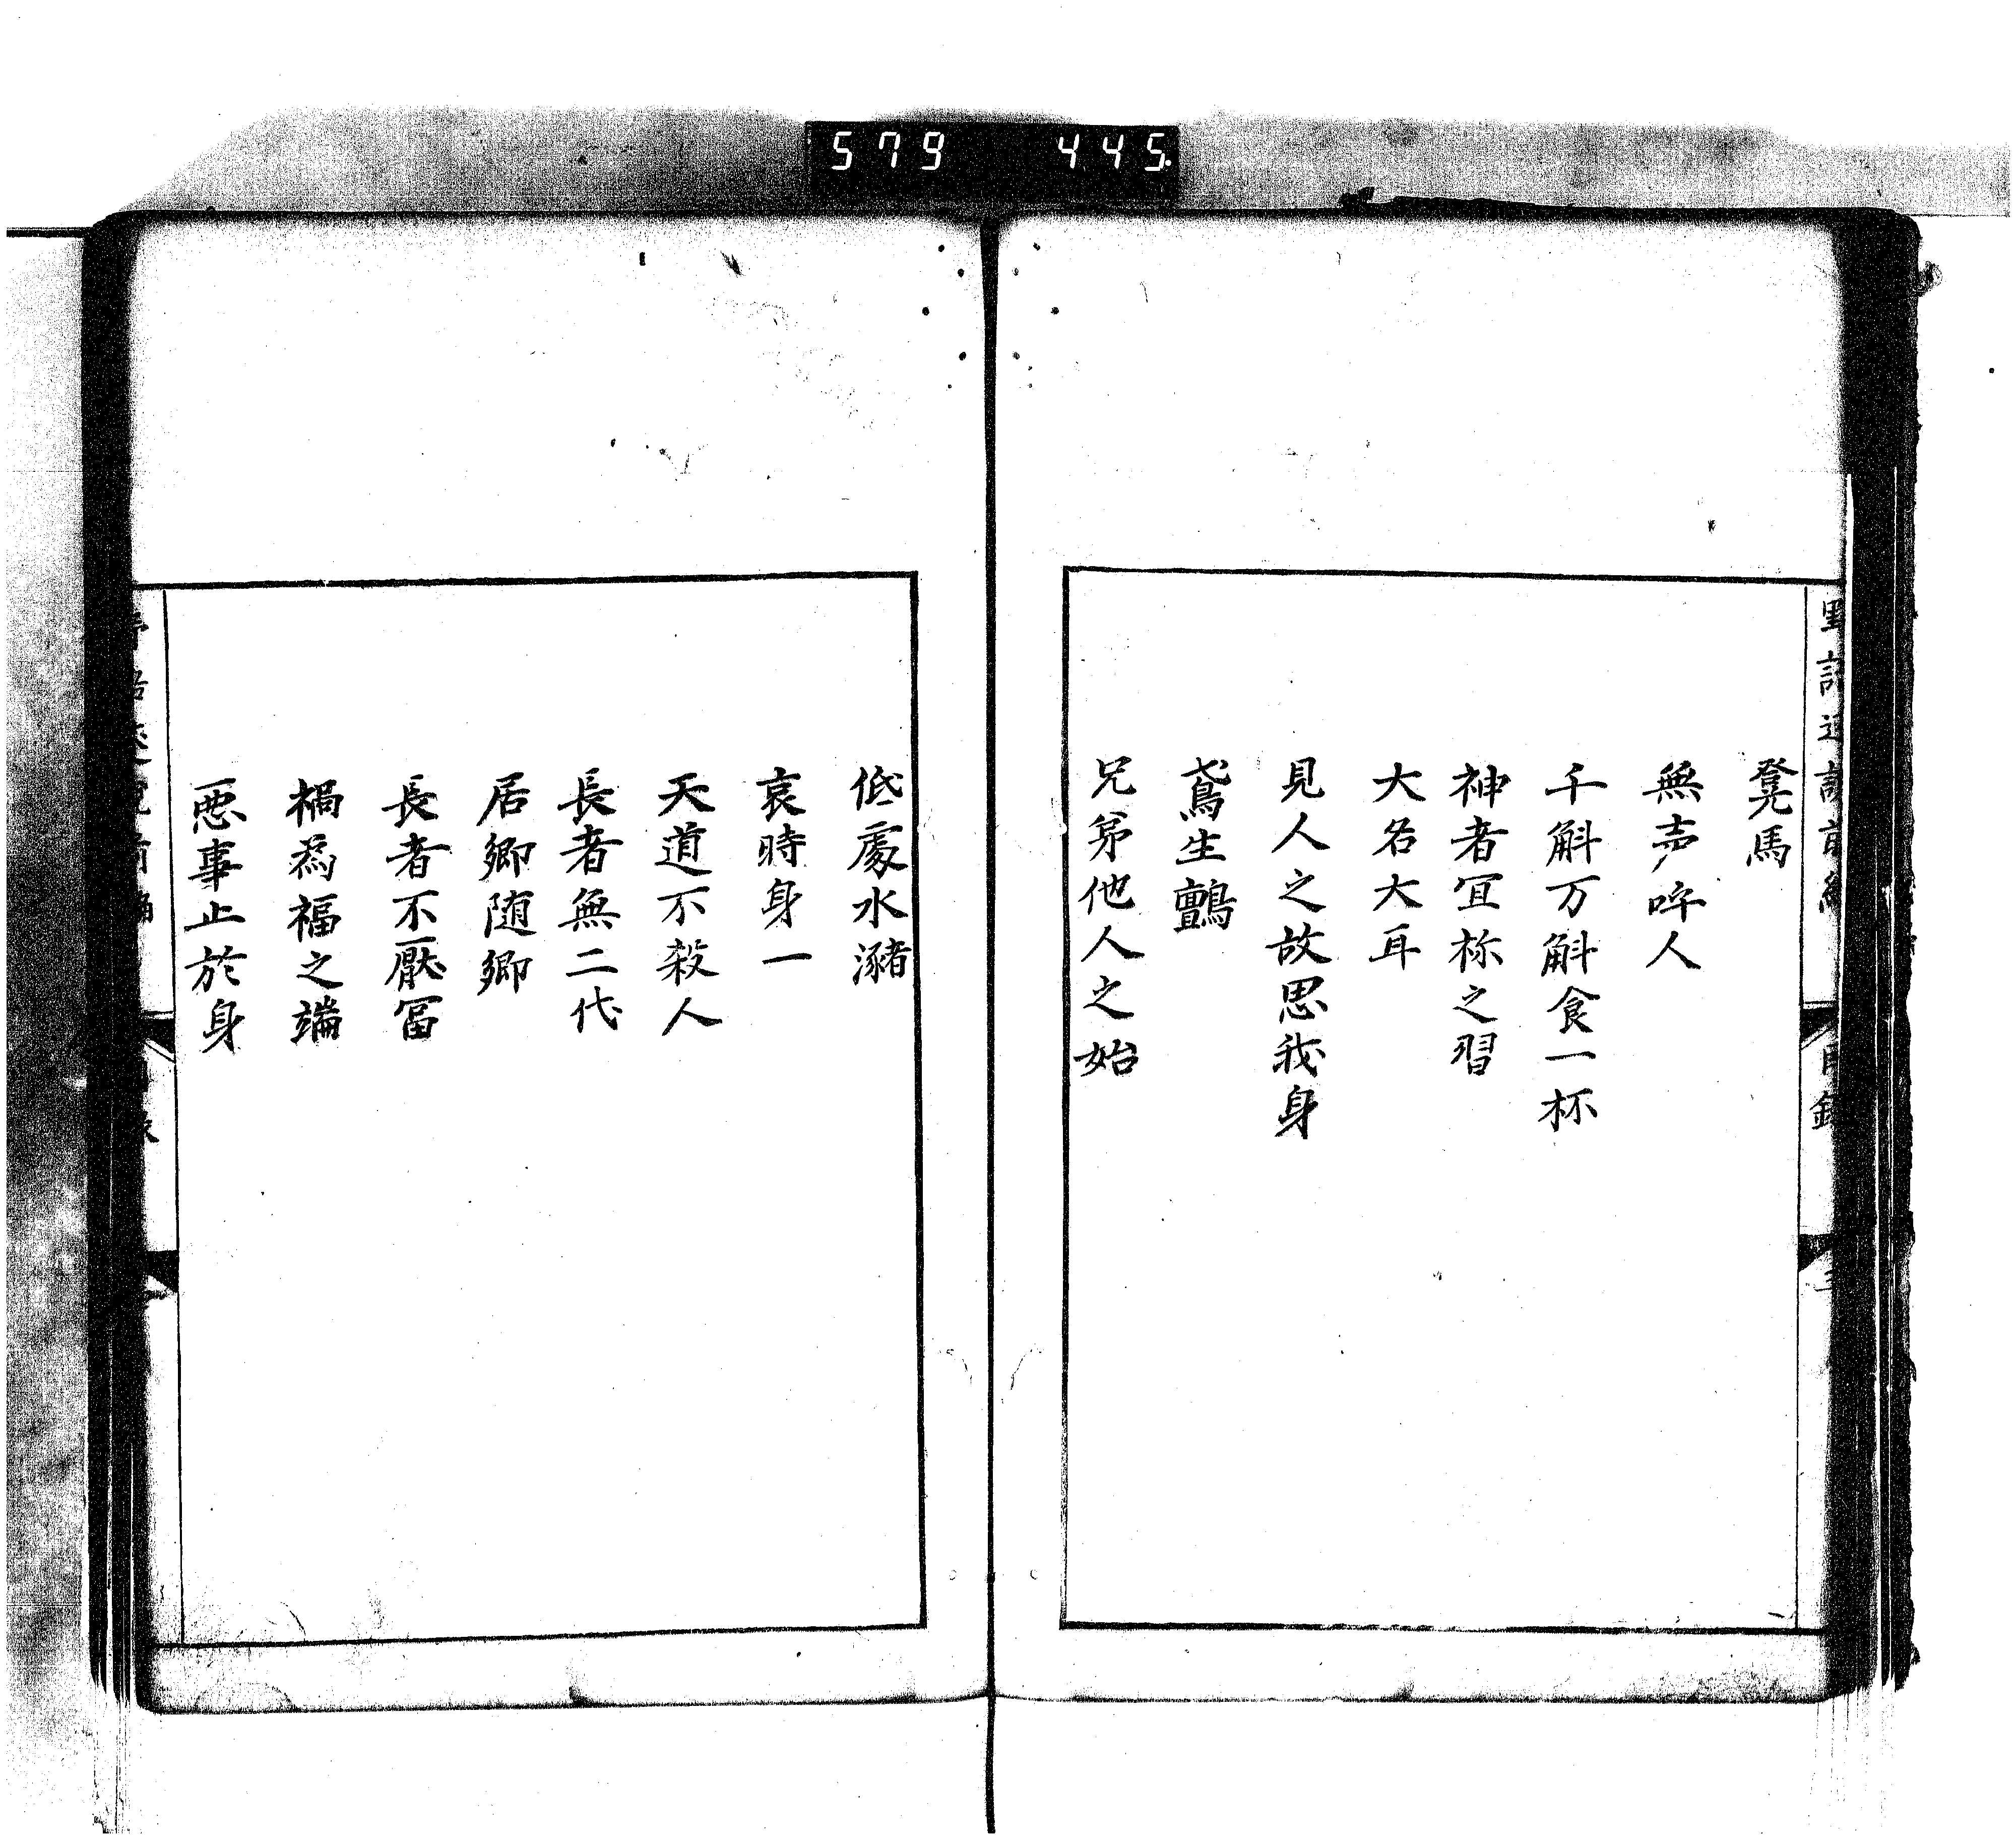 579 445
凳馬
無声呼人
千斛万斛食一杯
神者冝祢之習
大名大耳
見人之故思我身
鳶生鸇
兄弟他人之始
低處水瀦
哀時身一
天道不殺人
長者無二代
居郷随郷
長者不厭冨
禍為福之端
悪事止於身